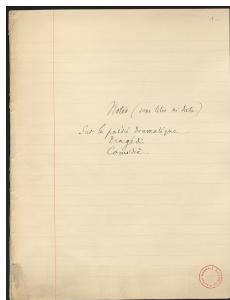 1
Notes (sans titre ni date)
Sur la poésie dramatique
Tragédie
Comédie